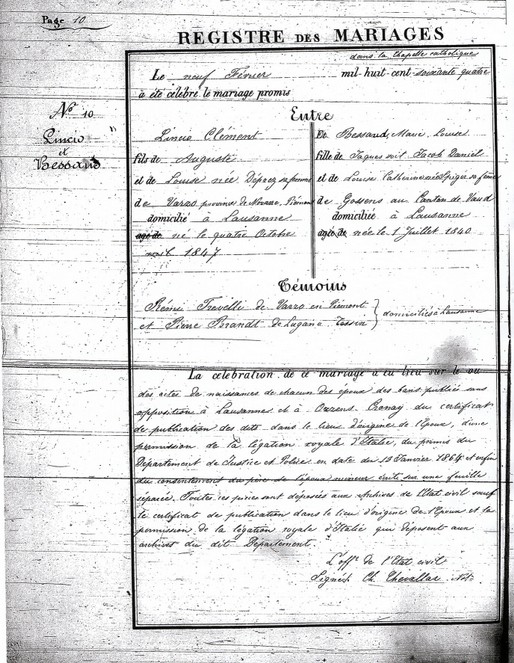 Page 10
REGISTRE DES MARIAGES
dans la Chapelle catholique
Le neuf Février mil huit cent soixante quatre
à été célébré le mariage promis
No 10
Lincio
et
Bessand
Entre
Lincio Clément
fils de Auguste
et de Louise née
de Varzo province de
domicilié à Lausanne
né le quatre Octobre
1847
Et Bessand, Marie, Louise
fille de Jaques soit Jacob Daniel
et de Louise Catherine née
de Gossens au Canton de Vaud
domicilié à Lausanne
née le 1 Juillet 1840
Témoins
Rémi Trevelli de Varzo en Piémont
et Pierre Brandt de Lugano Tessin
domiciliés à Lausanne
La célébration de ce mariage a eu lieu sur le vu
des actes de naissances de chacun des époux des bans publiés sans
opposition à Lausanne et à Orzens, du certificat
de publication des dits dans le lieu d'origine de l'Epoux, d'une
permission de la légation royale d'Italie, du permis du
Département de Justice et Police en date du 13 Janvier 1864 et enfin
du consentement du père de l'époux mineur écrit sur une feuille
séparée. Toutes ces pièces sont déposées aux archives de l'Etat civil sauf
le certificat de publication dans le lieu d'origine de l'Epoux et la
permission de la légation royale d'Italie qui déposent aux
archives du dit Département.
L'offr de l'Etat civil
Signé Ch. Chevallaz Notr